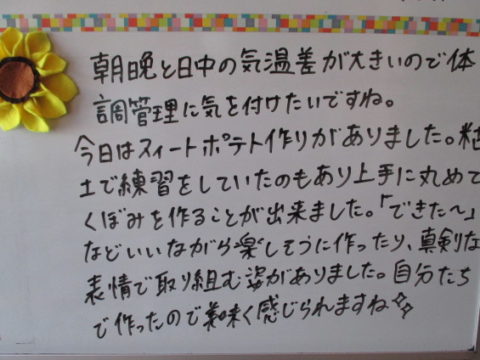 朝晩と日中の気温差が大きいので体
調管理に気を付けたいですね。
今日はスィートポテト作りがありました。粘
土で練習をしていたのもあり上手に丸めて
くぼみを作ることが出来ました。「できた〜」
などいいながら楽しそうに作ったり、真剣な
表情で取り組む姿がありました。自分たち
で作ったので美味く感じられますね✧